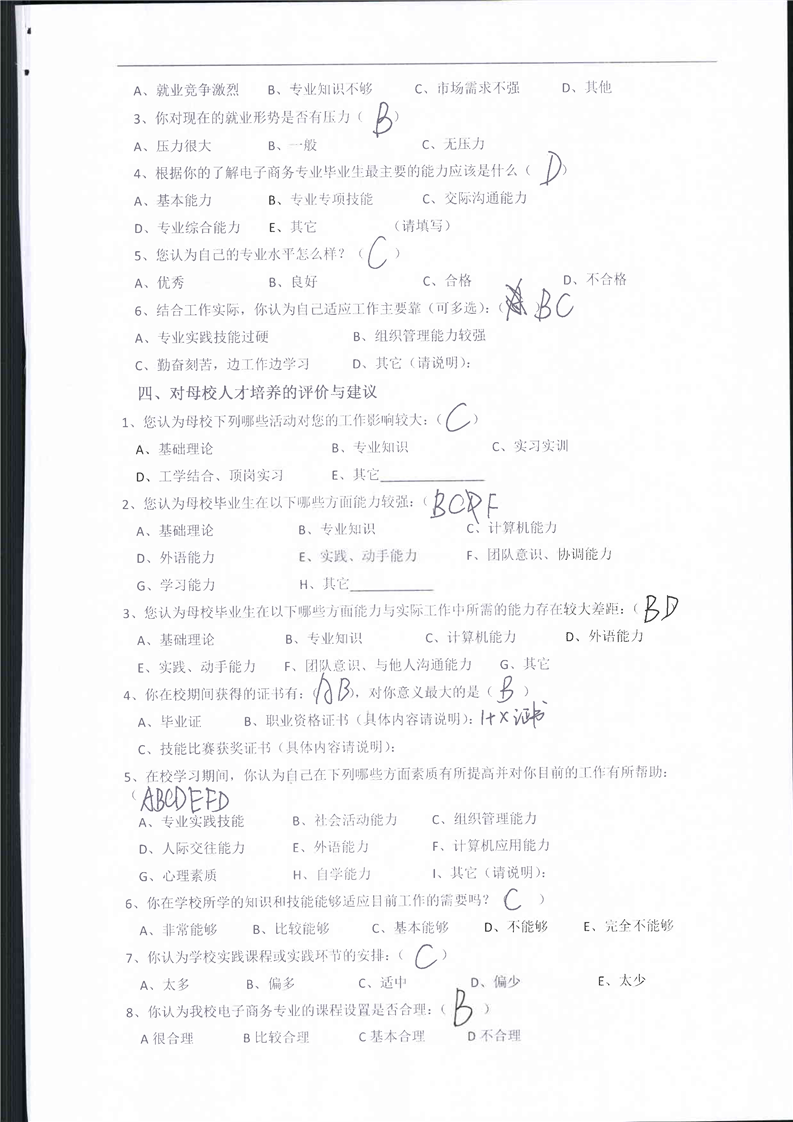 A、就业竞争激烈 B、专业知识不够 C、市场需求不强 D、其他
3、你对现在的就业形势是否有压力（ B ）
A、压力很大 B、一般 C、无压力
4、根据你的了解电子商务专业毕业生最主要的能力应该是什么（ D ）
A、基本能力 B、专业专项技能 C、交际沟通能力
D、专业综合能力 E、其它 （请填写）
5、您认为自己的专业水平怎么样？（ C ）
A、优秀 B、良好 C、合格 D、不合格
6、结合工作实际，你认为自己适应工作主要靠（可多选）：（ BC
A、专业实践技能过硬 B、组织管理能力较强
C、勤奋刻苦，边工作边学习 D、其它（请说明）：
四、对母校人才培养的评价与建议
1、您认为母校下列哪些活动对您的工作影响较大：（ C ）
A、基础理论 B、专业知识 C、实习实训
D、工学结合、顶岗实习 E、其它______________
2、您认为母校毕业生在以下哪些方面能力较强：（ BCDF
A、基础理论 B、专业知识 C、计算机能力
D、外语能力 E、实践、动手能力 F、团队意识、协调能力
G、学习能力 H、其它___________
3、您认为母校毕业生在以下哪些方面能力与实际工作中所需的能力存在较大差距：（ BD
A、基础理论 B、专业知识 C、计算机能力 D、外语能力
E、实践、动手能力 F、团队意识、与他人沟通能力 G、其它
4、你在校期间获得的证书有：（AB），对你意义最大的是（ B ）
A、毕业证 B、职业资格证书（具体内容请说明）：1+X证书
C、技能比赛获奖证书（具体内容请说明）：
5、在校学习期间，你认为自己在下列哪些方面素质有所提高并对你目前的工作有所帮助：
（ABCDEFD
A、专业实践技能 B、社会活动能力 C、组织管理能力
D、人际交往能力 E、外语能力 F、计算机应用能力
G、心理素质 H、自学能力 I、其它（请说明）：
6、你在学校所学的知识和技能能够适应目前工作的需要吗？ C ）
A、非常能够 B、比较能够 C、基本能够 D、不能够 E、完全不能够
7、你认为学校实践课程或实践环节的安排：（ C ）
A、太多 B、偏多 C、适中 D、偏少 E、太少
8、你认为我校电子商务专业的课程设置是否合理：（ B ）
A 很合理 B 比较合理 C 基本合理 D 不合理